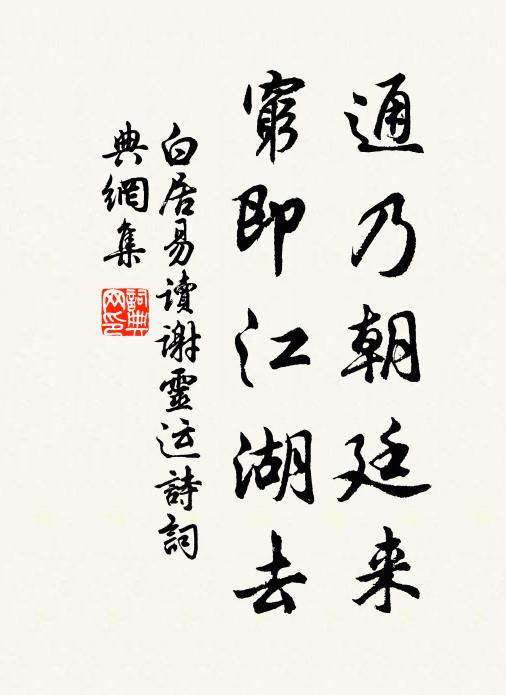 通乃朝廷来
窮即江湖去
白居易读谢靈运詩詞
典網集
詞典网印